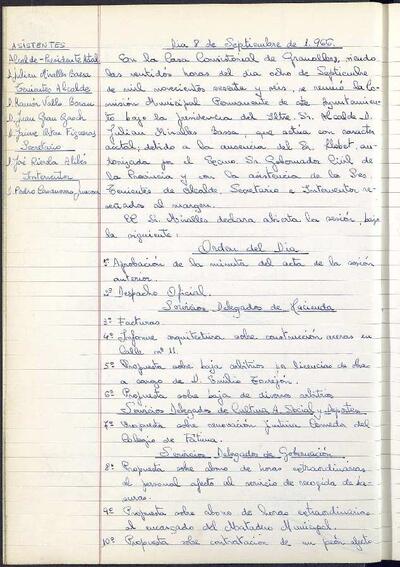 Dia 8 de Septiembre de 1.966.
ASISTENTES
Alcalde-Presidente Actal.
D. Julián Miralles Bassa
Tenientes Alcalde
D. Ramón Valls
D. Juan Grau
D. Jaime Figueras
Secretario
D. José Rienda
Interventor
D. Pedro
En la Casa Consistorial de Granollers, siendo
las veintidós horas del día ocho de Septiembre
de mil novecientos sesenta y seis, se reunió la Co-
misión Municipal Permanente de este Ayuntamien-
to bajo la presidencia del Iltre. Sr. Alcalde D.
Julián Miralles Bassa, que actúa con carácter
actal, debido a la ausencia del Sr. Llobet, au-
torizada por el Excmo. Sr. Gobernador Civil de
la Provincia y con la asistencia de los Sres.
Tenientes de Alcalde, Secretario e Interventor re-
señados al margen.
El Sr. Miralles declara abierta la sesión, bajo
la siguiente:
Orden del Dia
1º Aprobación de la minuta del acta de la sesión
anterior.
2º Despacho Oficial.
Servicios Delegados de Hacienda
3º Facturas.
4º Informe arquitectura sobre construcción aceras en
Calle nº 11.
5º Propuesta sobre baja arbitrios por licencias de obra
a cargo de D. Emilio Torrejón.
6º Propuesta sobre baja de diversos arbitrios
Servicios Delegados de Cultura A. Social y Deportes
7º Propuesta sobre concesión Comedor del
Colegio de Fátima.
Servicios Delegados de Gobernación
8º Propuesta sobre abono de horas extraordinarias
al personal afecto al servicio de recogida de ba-
suras.
9º Propuesta sobre abono de horas extraordinarias
al encargado del Matadero Municipal.
10º Propuesta sobre contratación de un peón afecto